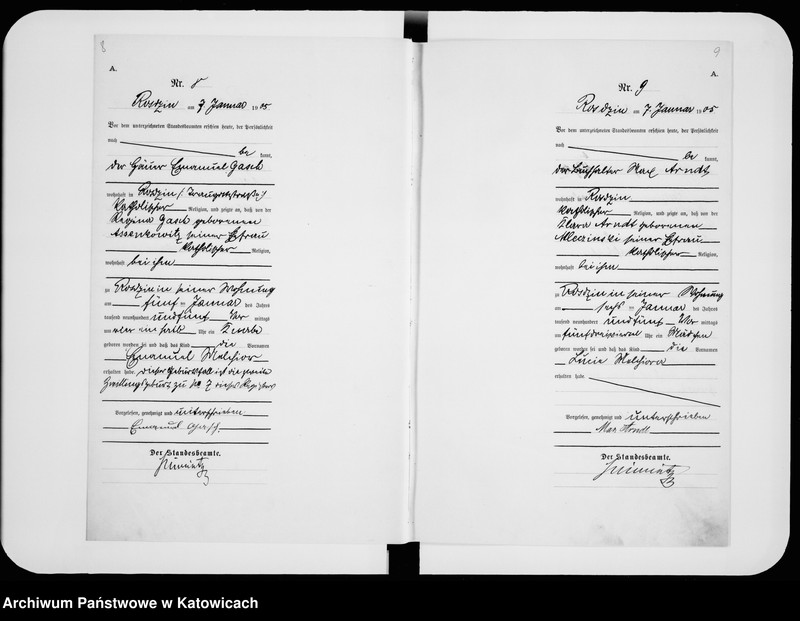 8
A.
Nr. 8
Rosdzin am 7 Januar 1905
Vor dem unterzeichneten Standesbeamten erschien heute, der Persönlichkeit
nach
be kannt,
der Häuer Emanuel Gasch
wohnhaft in Rosdzin (Traugottstraße)
katholischer Religion, und zeigte an, daß von der
Regina Gasch geborenen
seiner Ehefrau
katholischer Religion,
wohnhaft bei ihm
zu Rosdzin in seiner Wohnung
am fünf ten Januar des Jahres
tausend neunhundert und fünf Vor mittags
um Uhr ein Knabe
geboren worden sei und daß das Kind die Vornamen
Emanuel Melchior
erhalten habe. dieser Geburtsfall ist die zweite
Zwillingsgeburt zu No 7 dieses Registers
Vorgelesen, genehmigt und unterschrieben
Emanuel Gasch.
Der Standesbeamte.
9
A.
Nr. 9
Rosdzin am 7. Januar 1905
Vor dem unterzeichneten Standesbeamten erschien heute, der Persönlichkeit
nach
be kannt,
der Buchhalter Max Arndt
wohnhaft in Rosdzin
katholischer Religion, und zeigte an, daß von der
Klara Arndt geborenen
Mleczinski seiner Ehefrau
katholischer Religion,
wohnhaft bei ihm
zu Rosdzin in seiner Wohnung
am sechs ten Januar des Jahres
tausend neunhundert und fünf Vor mittags
um fünf dreiviertel Uhr ein Mädchen
geboren worden sei und daß das Kind die Vornamen
Lucie Melchiora
erhalten habe.
Vorgelesen, genehmigt und unterschrieben
Max Arndt
Der Standesbeamte.
Archiwum Państwowe w Katowicach